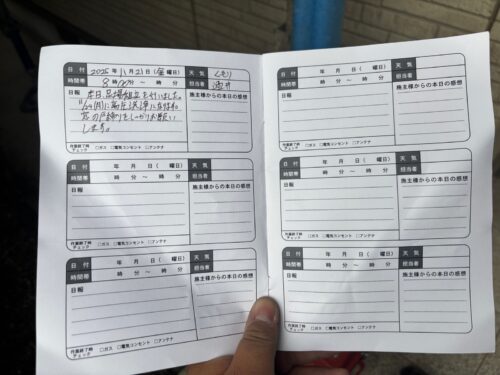 日付 2025年 11月 21日 (金曜日) 天気 くもり
時間帯 8時 分 ～ 時 分 担当者 酒井
日報 施主様からの本日の感想
本日、足場組立を行いました。
11/24(月)に高圧洗浄に伺いますので
窓の戸締りをしっかりお願い
します。
作業終了時チェック □ガス □電気コンセント □アンテナ
日付 年 月 日 ( 曜日) 天気
時間帯 時 分 ～ 時 分 担当者
日報 施主様からの本日の感想
作業終了時チェック □ガス □電気コンセント □アンテナ
日付 年 月 日 ( 曜日) 天気
時間帯 時 分 ～ 時 分 担当者
日報 施主様からの本日の感想
作業終了時チェック □ガス □電気コンセント □アンテナ
日付 年 月 日 ( 曜日) 天気
時間帯 時 分 ～ 時 分 担当者
日報 施主様からの本日の感想
作業終了時チェック □ガス □電気コンセント □アンテナ
日付 年 月 日 ( 曜日) 天気
時間帯 時 分 ～ 時 分 担当者
日報 施主様からの本日の感想
作業終了時チェック □ガス □電気コンセント □アンテナ
日付 年 月 日 ( 曜日) 天気
時間帯 時 分 ～ 時 分 担当者
日報 施主様からの本日の感想
作業終了時チェック □ガス □電気コンセント □アンテナ